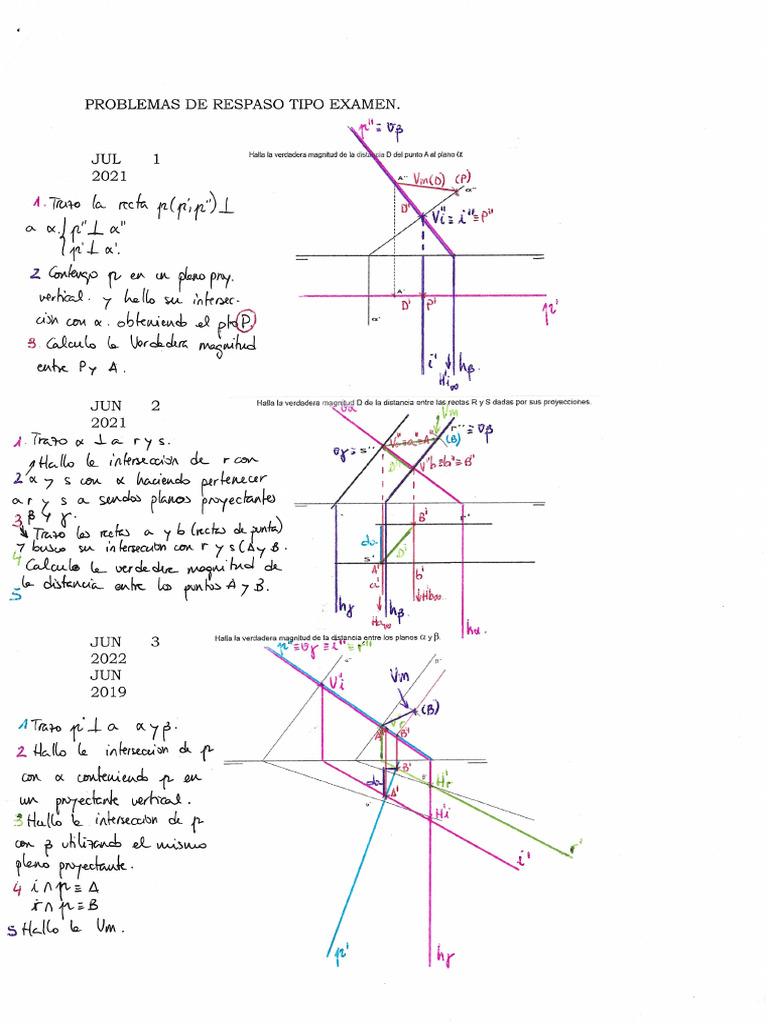 PROBLEMAS DE RESPASO TIPO EXAMEN.
JUL 1
2021
Halla la verdadera magnitud de la distancia D del punto A al plano α
1. Trazo la recta p(p',p'') ⊥
a α. { p'' ⊥ α''
p' ⊥ α'.
2 Contengo p en un plano proy.
vertical. y hallo su intersec-
ción con α. obteniendo el pto P.
3. Calculo la Verdadera magnitud
entre P y A.
p''≡vβ
A''
Vm(D)
(P)
α''
D''
Vi''≡i''≡P''
A'
D'
P'
p'
α'
i'
hβ
Hi∞
JUN 2
2021
Halla la verdadera magnitud D de la distancia entre las rectas R y S dadas por sus proyecciones.
1. Trazo α ⊥ a r y s.
Hallo la intersección de r con
2 α y s con α haciendo pertenecer
a r y s a sendos planos proyectantes
3 β y γ.
Trazo las rectas a y b (rectas de punta)
y busco su intersección con r y s (A y B.
4 Calculo la verdadera magnitud de
la distancia entre los puntos A y B.
5
vα
Vm
r''≡vβ
vγ≡s''
Va''≡a''≡A''
(B)
D''
V''b≡b''≡B''
B'
r'
da
D'
s'
A'
a'
b'
Ha∞
Hb∞
hγ
hβ
hα.
JUN 3
2022
JUN
2019
Halla la verdadera magnitud de la distancia entre los planos α y β.
1 Trazo p ⊥ a α y β.
2 Hallo la intersección de p
con α conteniendo p en
un proyectante vertical.
3 Hallo la intersección de p
con β utilizando el mismo
plano proyectante.
4 i ∩ p ≡ A
r ∩ p ≡ B
5 Hallo la Vm.
p''≡vγ≡i''≡r''
α''
β''
Vi
Vm
(B)
A''
B''
B'
da
A'
Hr
Hi
α'
β'
r'
i'
p'
hγ